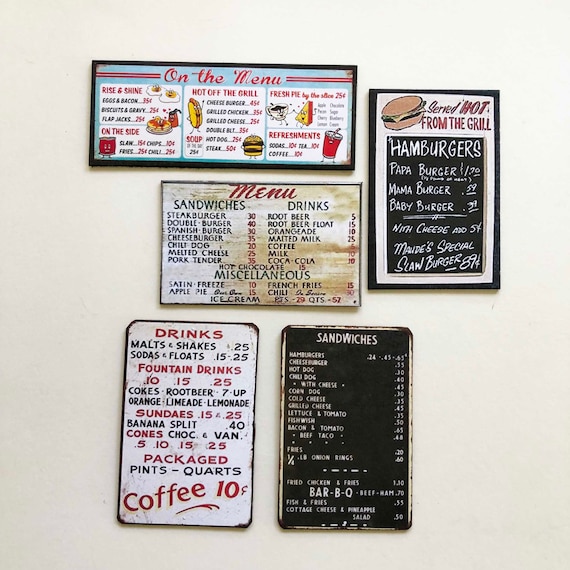 On the Menu
RISE & SHINE
EGGS & BACON...35¢
BISCUITS & GRAVY...25¢
FLAP JACKS...25¢
ON THE SIDE
SLAW...15¢ CHIPS...10¢
FRIES...25¢ CHILI...25¢
HOT OFF THE GRILL
CHEESE BURGER...45¢
GRILLED CHICKEN...35¢
GRILLED CHEESE...25¢
DOUBLE BLT...35¢
HOT DOG...25¢
STEAK...50¢
SOUP
OF THE DAY
25¢
FRESH PIE by the slice 25¢
Apple Chocolate
Pecan Sugar
Cherry Blueberry
Lemon Cream
REFRESHMENTS
SODAS...10¢ TEA...10¢
COFFEE...10¢
Served "HOT"
FROM THE GRILL
HAMBURGERS
PAPA BURGER
MAMA BURGER .59
BABY BURGER .39
WITH CHEESE ADD 5¢
MAUDE'S SPECIAL
SLAW BURGER 89¢
MENU
SANDWICHES DRINKS
STEAKBURGER 30 ROOT BEER 5
DOUBLE-BURGER 40 ROOT BEER FLOAT 15
SPANISH-BURGER 30 ORANGEADE 10
CHEESEBURGER 35 MALTED MILK 25
CHILI DOG 20 COFFEE 5
MELTED CHEESE 25 MILK 10
PORK TENDER 35 COCA-COLA 10
HOT CHOCOLATE 15
MISCELLANEOUS
SATIN-FREEZE 10 FRENCH FRIES 15
APPLE PIE Our Own 15 CHILI In Season 30
ICE CREAM PTS-29 QTS.-57
DRINKS
MALTS & SHAKES .25
SODAS & FLOATS .15-.25
FOUNTAIN DRINKS
.10 .15 .25
COKES·ROOTBEER·7-UP
ORANGE·LIMEADE·LEMONADE
SUNDAES .15 & .25
BANANA SPLIT .40
CONES CHOC. & VAN.
.5 .10 .15 .25
PACKAGED
PINTS - QUARTS
Coffee 10¢
SANDWICHES
HAMBURGERS .24 -.45-.65
CHEESEBURGER .35
HOT DOG .35
CHILI DOG .40
" WITH CHEESE "
CORN DOG
COLD CHEESE
GRILLED CHEESE .45
LETTUCE & TOMATO .35
FISHWISH .50
BACON & TOMATO .65
" BEEF TACO " .48
FRIES .20
¼ .LB ONION RINGS .60
FRIED CHICKEN & FRIES 1.10
BAR-B-Q - BEEF-HAM .70
FISH & FRIES .55
COTTAGE CHEESE & PINEAPPLE
SALAD .50